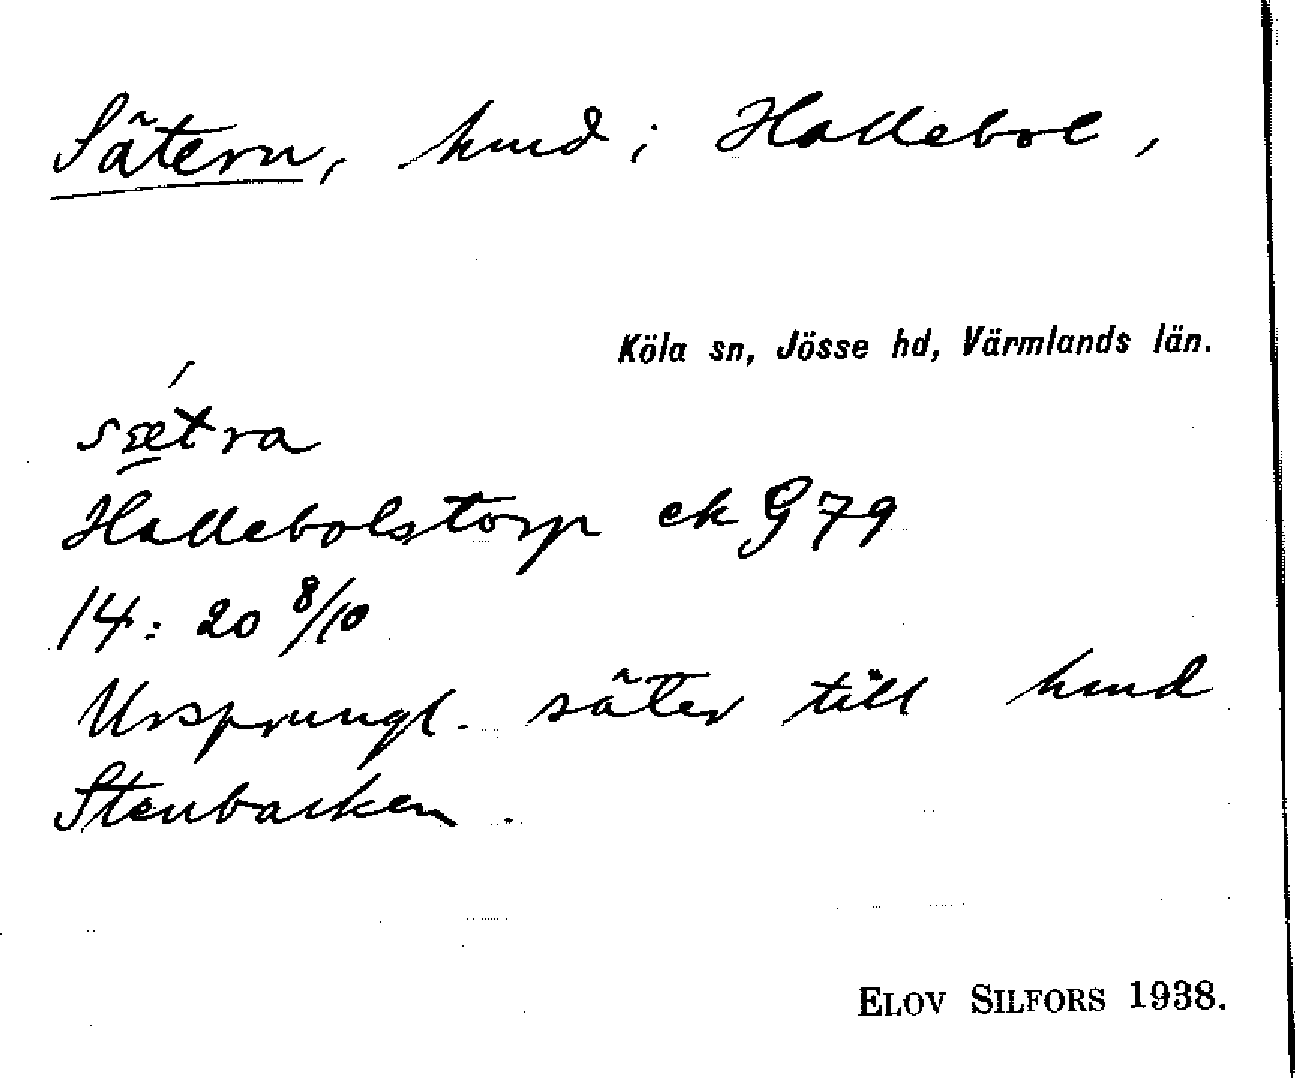 Sätern, hmd i Hallebol,
Köla sn, Jösse hd, Värmlands län.
sætra
Hallebolstorp ek G 79
14: 20 8/10
Ursprungl. säter till hmd
Stenbacken.
ELOV SILFORS 1938.